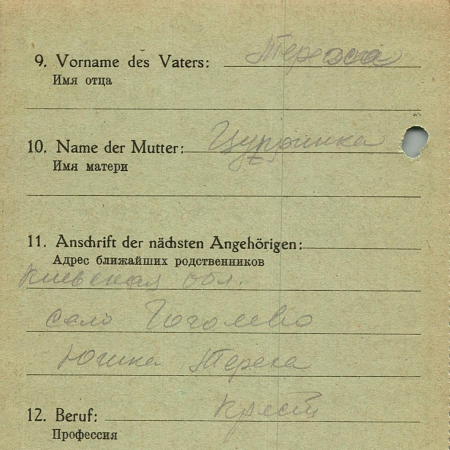 9. Vorname des Vaters: Тереха
Имя отца
10. Name der Mutter:
Имя матери
11. Anschrift der nächsten Angehörigen:
Адрес ближайших родственников
Киевская обл.
село Гоголево
Юшка Тереха
12. Beruf: Крест
Профессия